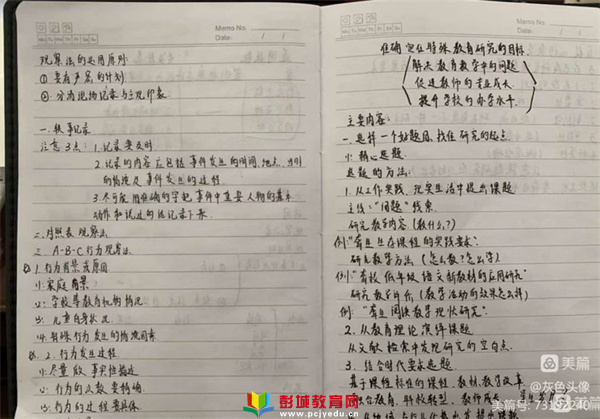 Memo No.
Date / /
观察法的运用原则
① 要有严密的计划
② 分清现场记录与主观印象
一. 轶事记录
注意3点: 1. 记录要及时
2. 记录的内容应包括事件发生的时间、地点、当时
的情境及事件发生的过程
3. 尽可能用准确的字把事件中重要人物的基本
动作和说过的话记录下来.
二. 时间表观察法
三. A-B-C行为观察法
1. 行为背景或原因
(1). 家庭背景:
(2). 学校等教育机构情况
(3). 儿童自身状况
(4). 特殊行为发生的情境因素
2. 行为发生过程
(1). 尽量放.事实性描述
(2). 行为的次数要精确
(3). 行为的过程要具体
Memo No.
Date / /
准确定位特殊教育研究的目标
解决教育教学中的问题
促进教师的专业成长
提升学校的办学水平
主要内容:
一. 选择一个好题目, 找准研究的起点
(1). 精心选题.
选题的方法:
1. 从工作实践、现实生活中提出课题
主线: "问题"线索.
研究教学内容 (教什么?)
例: "盲生生存课程的实践要求".
研究教学方法 (怎么教?怎么学)
例: "聋校低年级语文新教材的应用研究"
研究教学评价 (教学活动的效果怎么样)
例: "盲生阅读教学现状研究".
2. 从教育理论演绎课题
从文献检索中发现研究的空白点.
3. 结合时代要求选题
基于课程标准的课程、教材、教学改革
融合教育、科技赋型、教师成长
美篇
@灰色头像
美篇号: 73197240
彭城教育网
www.pcjyedu.cn